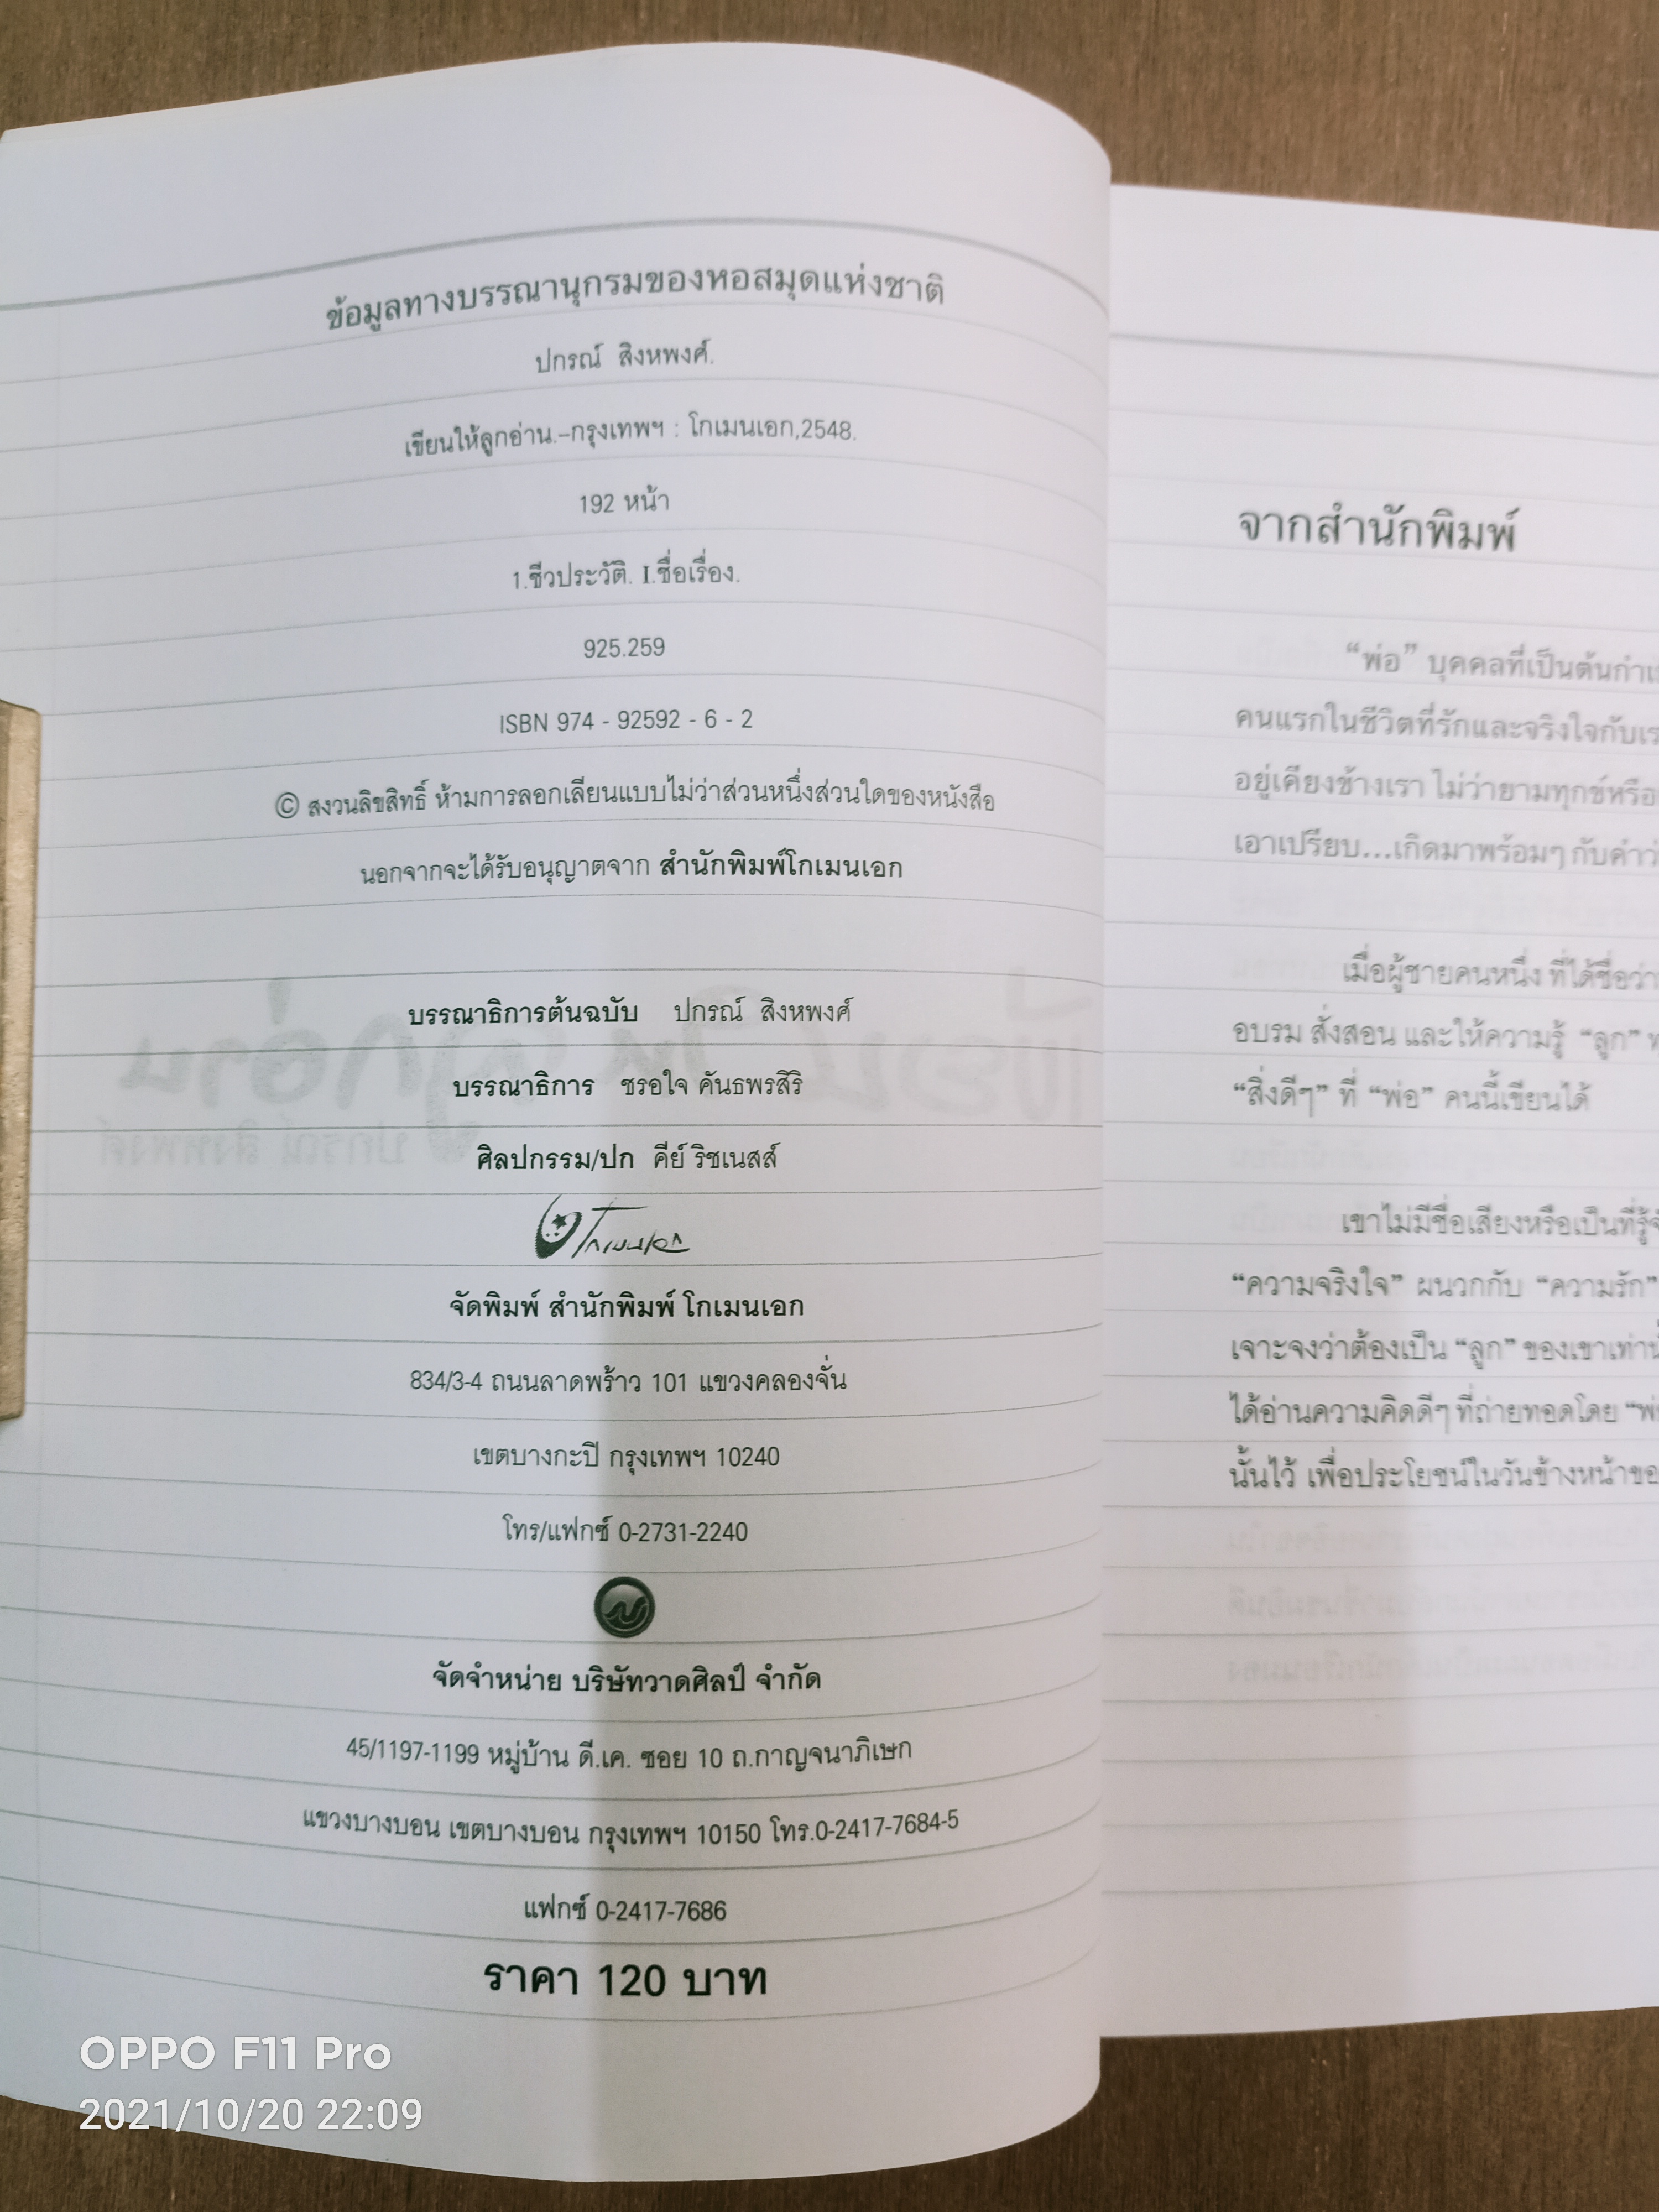 ข้อมูลทางบรรณานุกรมของหอสมุดแห่งชาติ
ปกรณ์ สิงหพงศ์.
เขียนให้ลูกอ่าน.–กรุงเทพฯ : โกเมนเอก,2548.
192 หน้า
1.ชีวประวัติ. I.ชื่อเรื่อง.
925.259
ISBN 974 - 92592 - 6 - 2
© สงวนลิขสิทธิ์ ห้ามการลอกเลียนแบบไม่ว่าส่วนหนึ่งส่วนใดของหนังสือ
นอกจากจะได้รับอนุญาตจาก สำนักพิมพ์โกเมนเอก
บรรณาธิการต้นฉบับ ปกรณ์ สิงหพงศ์
บรรณาธิการ ชรอใจ คันธพรสิริ
ศิลปกรรม/ปก คีย์ ริชเนสส์
โกเมนเอก
จัดพิมพ์ สำนักพิมพ์ โกเมนเอก
834/3-4 ถนนลาดพร้าว 101 แขวงคลองจั่น
เขตบางกะปิ กรุงเทพฯ 10240
โทร/แฟกซ์ 0-2731-2240
จัดจำหน่าย บริษัทวาดศิลป์ จำกัด
45/1197-1199 หมู่บ้าน ดี.เค. ซอย 10 ถ.กาญจนาภิเษก
แขวงบางบอน เขตบางบอน กรุงเทพฯ 10150 โทร.0-2417-7684-5
แฟกซ์ 0-2417-7686
ราคา 120 บาท
จากสำนักพิมพ์
“พ่อ” บุคคลที่เป็นต้นกำเ
คนแรกในชีวิตที่รักและจริงใจกับเร
อยู่เคียงข้างเรา ไม่ว่ายามทุกข์หรือ
เอาเปรียบ...เกิดมาพร้อมๆ กับคำว่
เมื่อผู้ชายคนหนึ่ง ที่ได้ชื่อว่า
อบรม สั่งสอน และให้ความรู้ “ลูก”
“สิ่งดีๆ” ที่ “พ่อ” คนนี้เขียนได้
เขาไม่มีชื่อเสียงหรือเป็นที่รู้จ
“ความจริงใจ” ผนวกกับ “ความรัก”
เจาะจงว่าต้องเป็น “ลูก” ของเขาเท่านั้
ได้อ่านความคิดดีๆ ที่ถ่ายทอดโดย “พ่
นั้นไว้ เพื่อประโยชน์ในวันข้างหน้าขอ
OPPO F11 Pro
2021/10/20 22:09